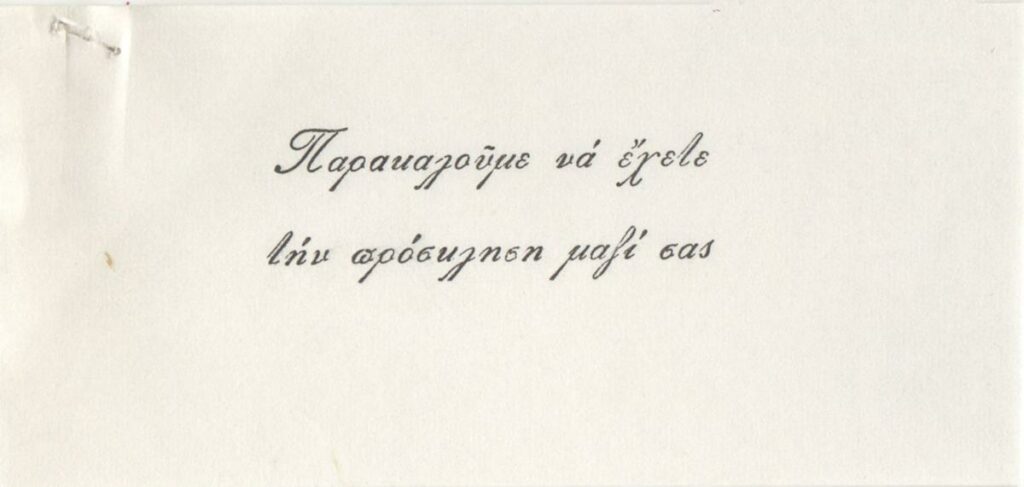 Παρακαλοῦμε νά ἔχετε
τήν πρόσκληση μαζί σας